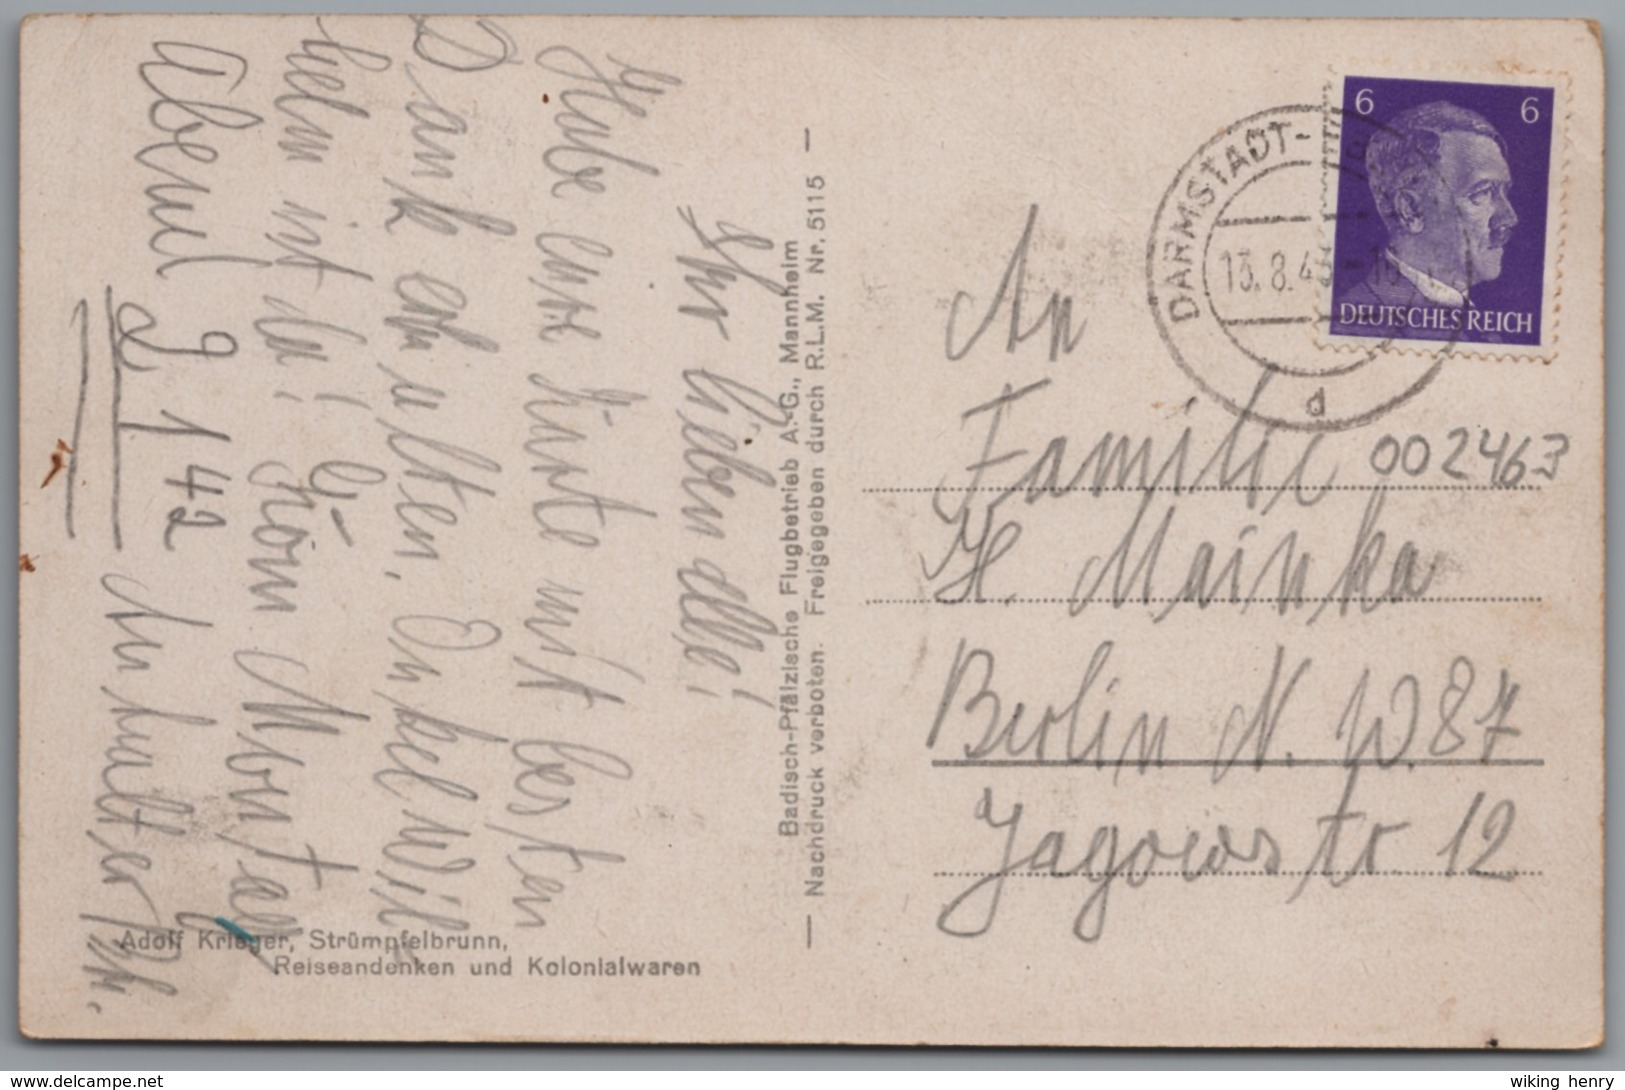 Ihr lieben alle!
Habe eure Karte mit besten
Dank erhalten. Onkel Wil-
helm ist da!
Montag
Abend 9 142 Anhalter Bh.
Adolf Krieger, Strümpfelbrunn,
Reiseandenken und Kolonialwaren
Badisch-Pfälzische Flugbetrieb A.-G., Mannheim
— Nachdruck verboten. Freigegeben durch R.L.M. Nr. 5115 —
DARMSTADT-
13.8.43
d
6 6
DEUTSCHES REICH
An
Familie
002463
H. Mainka
Berlin N.W.87
Jagowstr. 12
www.delcampe.net
wiking_henry